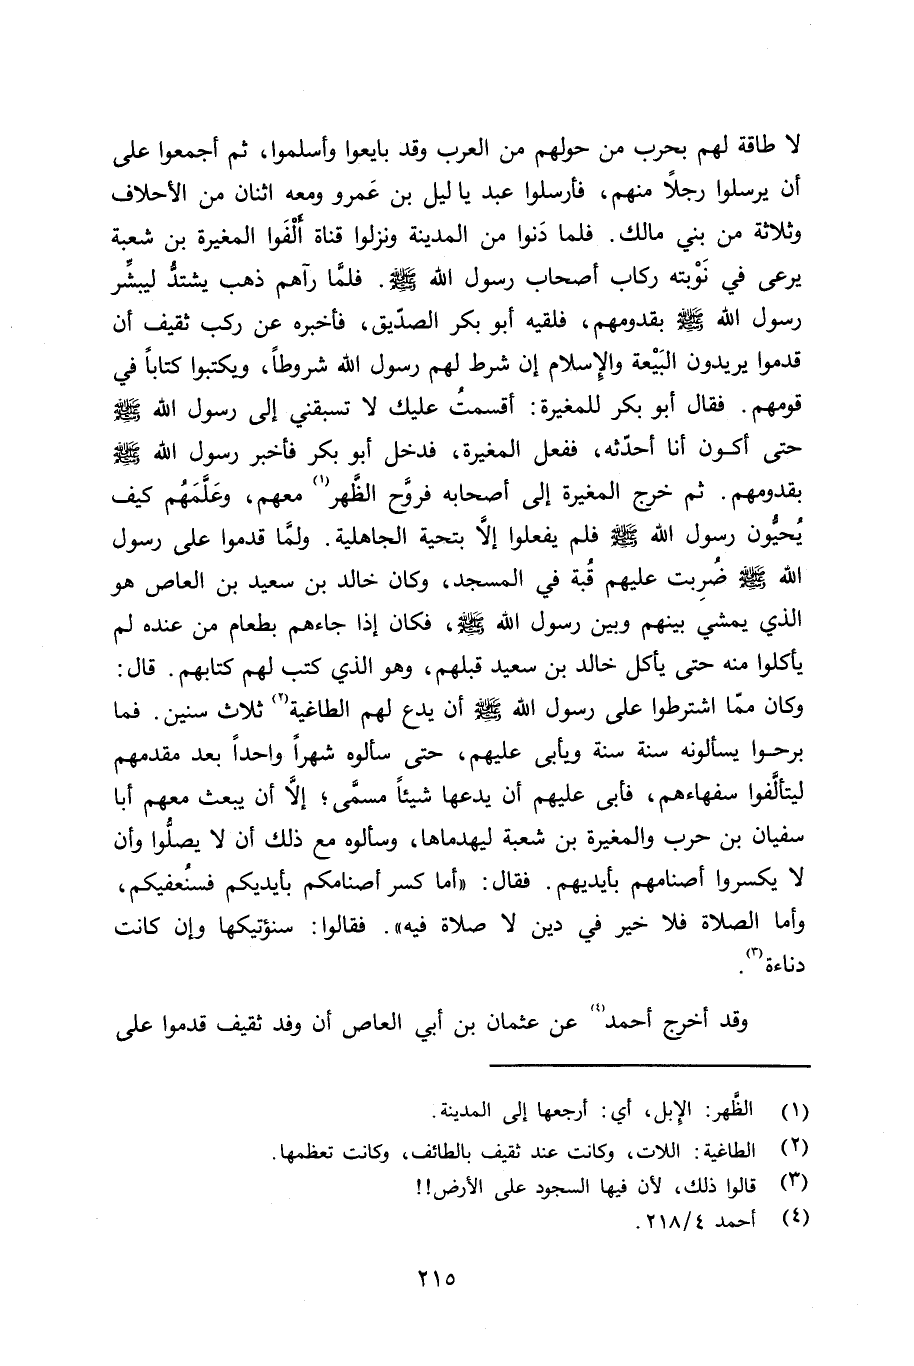 لا طاقة لهم بحرب من حولهم من العرب وقد بايعوا وأسلموا، ثم أجمعوا على
أن يرسلوا رجلاً منهم، فأرسلوا عبد يا ليل بن عَمرو ومعه اثنان من الأحلاف
وثلاثة من بني مالك. فلما دَنوا من المدينة ونزلوا قناة أَلْفَوا المغيرة بن شعبة
يرعى في نَوْبته ركاب أصحاب رسول الله ﷺ. فلمَّا رآهم ذهب يشتدُّ ليبشِّر
رسول الله ﷺ بقدومهم، فلقيه أبو بكر الصدّيق، فأخبره عن ركب ثقيف أن
قدموا يريدون البَيْعة والإسلام إن شرط لهم رسول الله شروطاً، ويكتبوا كتاباً في
قومهم. فقال أبو بكر للمغيرة: أقسمتُ عليك لا تسبقني إلى رسول الله ﷺ
حتى أكـون أنا أحدّثه، ففعل المغيرة، فدخل أبو بكر فأخبر رسول الله ﷺ
بقدومهم. ثم خرج المغيرة إلى أصحابه فروَّح الظَّهر(١) معهم، وعَلَّمَهُم كيف
يُحيُّون رسول الله ﷺ فلم يفعلوا إلاَّ بتحية الجاهلية. ولمَّا قدموا على رسول
الله ﷺ ضُرِبت عليهم قُبة في المسجد، وكان خالد بن سعيد بن العاص هو
الذي يمشي بينهم وبين رسول الله ﷺ، فكان إذا جاءهم بطعام من عنده لم
يأكلوا منه حتى يأكل خالد بن سعيد قبلهم، وهو الذي كتب لهم كتابهم. قال:
وكان ممّا اشترطوا على رسول الله ﷺ أن يدع لهم الطاغية(٢) ثلاث سنين. فما
برحـوا يسألونه سنة سنة ويأبى عليهم، حتى سألوه شهراً واحداً بعد مقدمهم
ليتألَّفوا سفهاءهم، فأبى عليهم أن يدعها شيئاً مسمَّى؛ إلَّا أن يبعث معهم أبا
سفيان بن حرب والمغيرة بن شعبة ليهدماها، وسألوه مع ذلك أن لا يصلُّوا وأن
لا يكسروا أصنامهم بأيديهم. فقال: «أما كسر أصنامكم بأيديكم فسنُعفيكم،
وأما الصلاة فلا خير في دين لا صلاة فيه». فقالوا: سنؤتيكها وإن كانت
دناءة(٣).
وقد أخرج أحمد(٤) عن عثمان بن أبي العاص أن وفد ثقيف قدموا على
(١) الظَّهر: الإبل، أي: أرجعها إلى المدينة.
(٢) الطاغية: اللات، وكانت عند ثقيف بالطائف، وكانت تعظمها.
(٣) قالوا ذلك، لأن فيها السجود على الأرض!!
(٤) أحمد ٢١٨/٤.
٢١٥